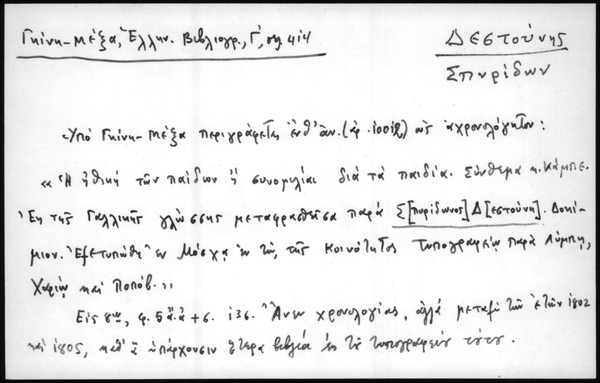 Γκίνη-Μέξα, Ἑλλην. Βιβλιογρ., Γ', σελ. 414
Δεστούνης
Σπυρίδων
Ὑπὸ Γκίνη-Μέξα περιγράφεται ἐνθ' ἀν. (ἀρ. ) ὡς ἀχρονολόγητον:
« Ἡ ἠθικὴ τῶν παίδων ἢ συνομιλίαι διὰ τὰ παιδία. Σύνθεμα κ. Κάμπε.
Ἐκ τῆς Γαλλικῆς γλώσσης μεταφρασθεῖσα παρὰ Σ[πυρίδωνος] Δ[εστούνη]. Δοκί-
μιον. Ἐξετυπώθη ἐν Μόσχᾳ ἐν τῷ τῆς Κοινότητος τυπογραφείῳ παρὰ Λύμπῃ,
Χαρίῳ καὶ Ποπόβ.»
Εἰς 8ον, φ. 5 + σ. 136. Ἄνευ χρονολογίας, ἀλλὰ μεταξὺ τῶν ἐτῶν 1802
καὶ 1805, καθ' ἃ ὑπάρχουσιν ἕτερα βιβλία ἐκ τοῦ τυπογραφείου τούτου.